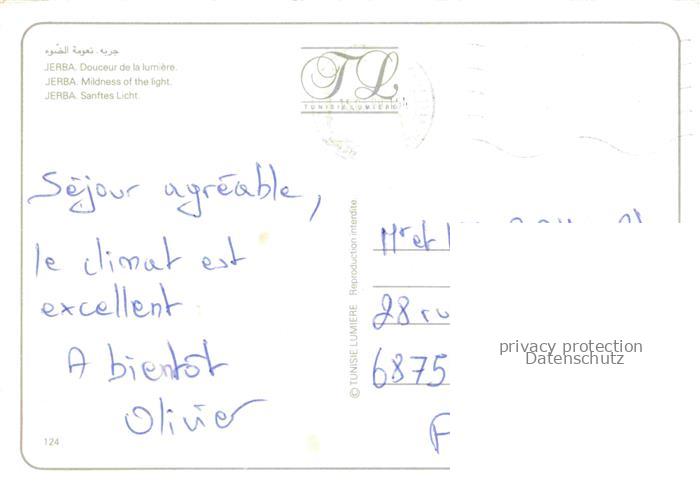 جربه. نعومة الضّوء
JERBA. Douceur de la lumière.
JERBA. Mildness of the light.
JERBA. Sanftes Licht.
TL
TUNISIE LUMIERE
Séjour agréable,
le climat est
excellent
A bientôt
Olivier
124
© TUNISIE LUMIERE Reproduction interdite
Mr et
28 ru
6875
F
privacy protection
Datenschutz